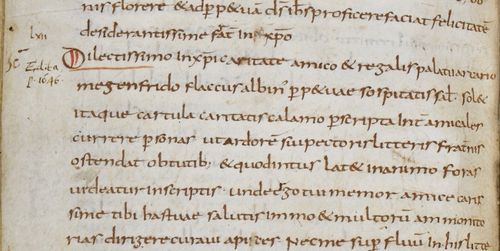 nis florere & adp̄p&uā ch̄sti b̄s proficere faciat felicitatē
desiderantissime frāt inxp̄o
lxii
Edita
p. 1646.
Dilectissimo inxp̄i caritate amico & regalis palatii arcario
megenfrido flaccus albin' p̄p&uae sospitatis sal̄. Sol&
itaque cartula caritatis calamo p̄scripta int̄ amicales
currere p̄sonas ut ardorē sui pectoris litteris fraternis
ostendat obtutib; & quod intus lat& in animo foras
uideatur in scriptis. unde ego tui memor amice caris
sime tibi has tuae salutis immo & multorū ammonito
rias dirigere curaui apices. Nec me sup̄fluū in his litte